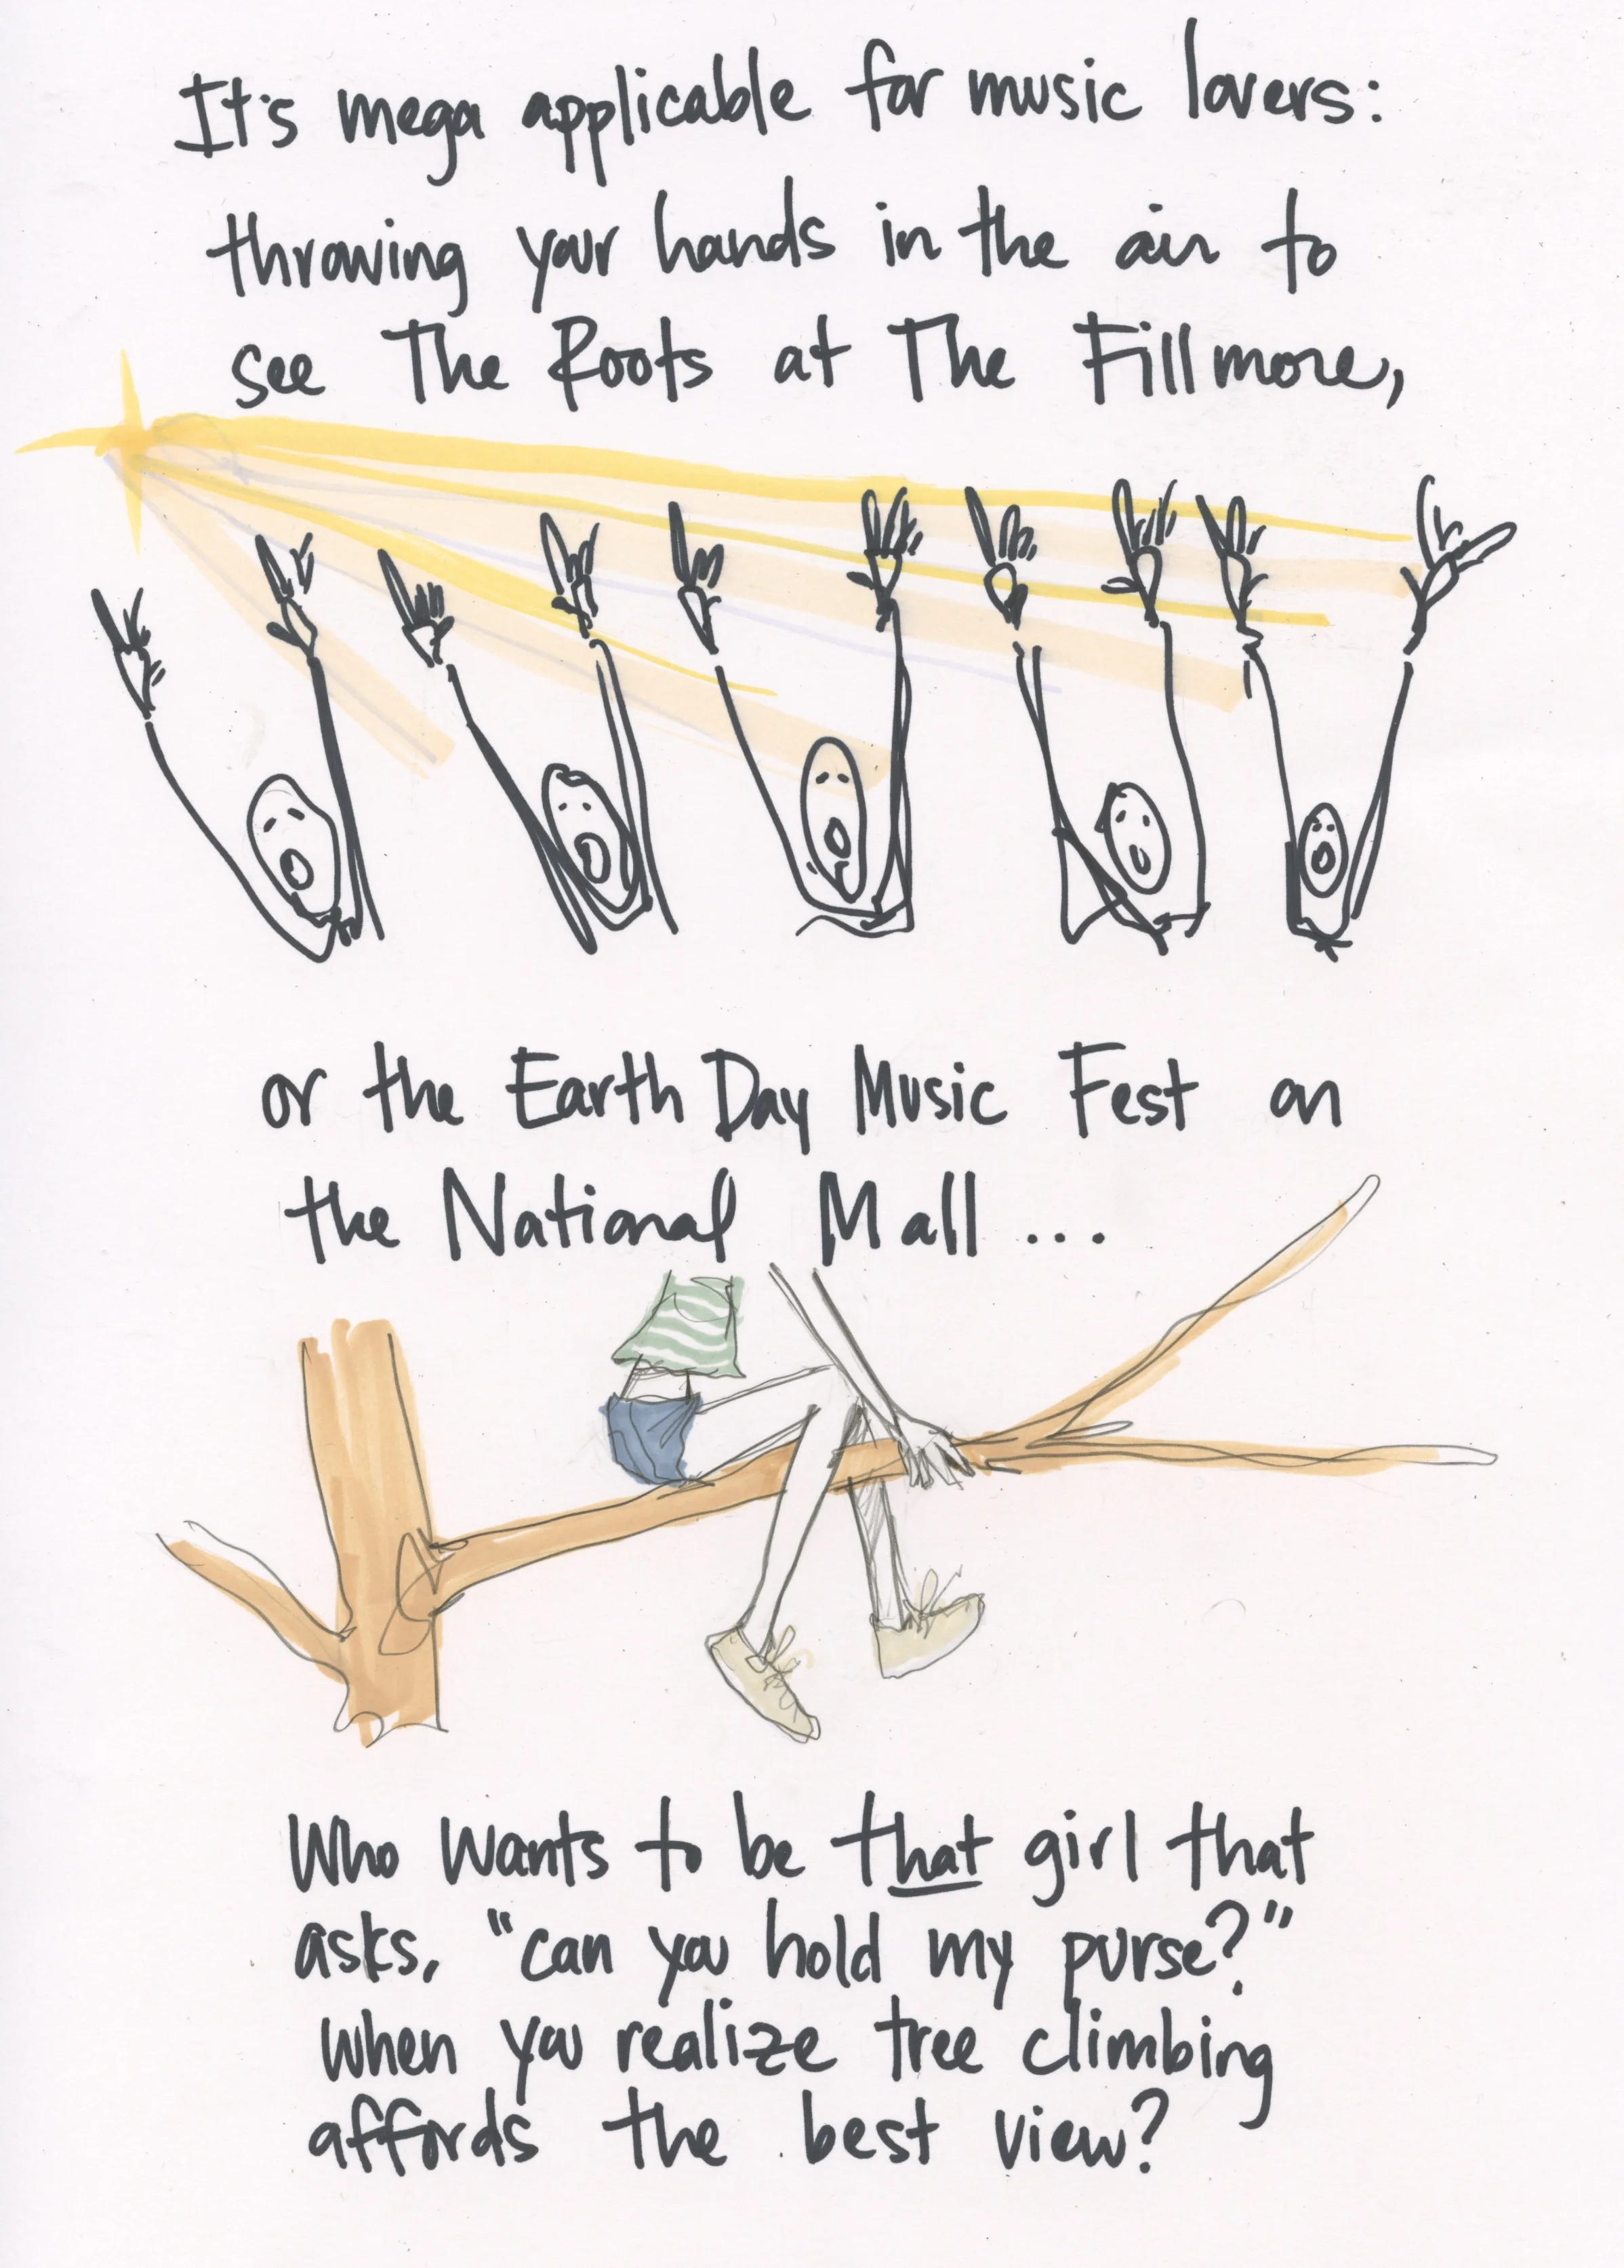 It's mega applicable for music lovers:
throwing your hands in the air to
see The Roots at The Fillmore,
or the Earth Day Music Fest on
the National Mall ...
Who wants to be that girl that
asks, "can you hold my purse?"
when you realize tree climbing
affords the best view?